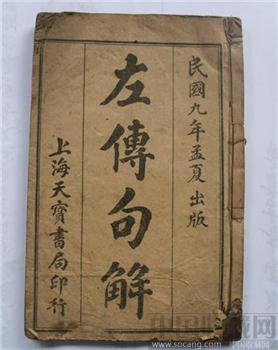 民國九年孟夏出版
左傳句解
上海天寶書局印行
中国收藏网
www.socang.com 中国收藏网